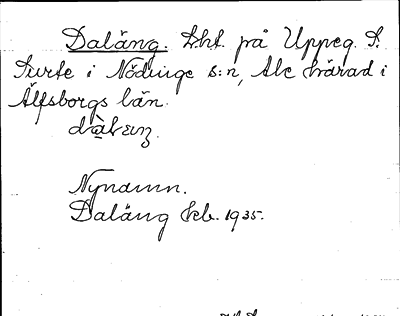 Daläng. Lht. på Uppeg. S.
Surte i Nödinge s:n, Ale härad i
Älfsborgs län.
Nynamn.
Daläng Ekb. 1935.